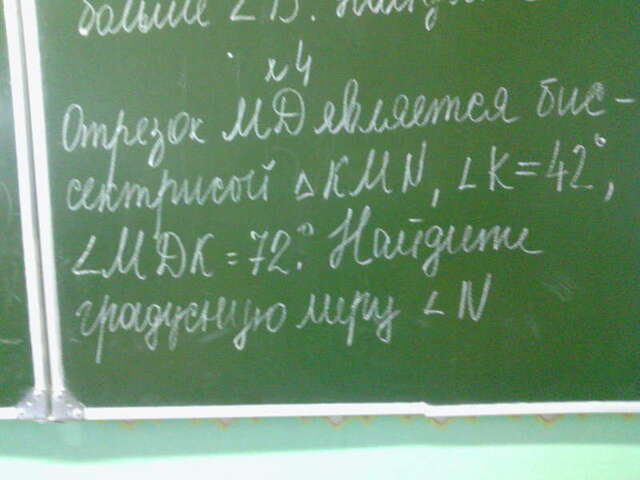 больше ∠B.
№4
Отрезок MD является бис-
сектрисой △KMN, ∠K=42°,
∠MDK=72°. Найдите
градусную меру ∠N